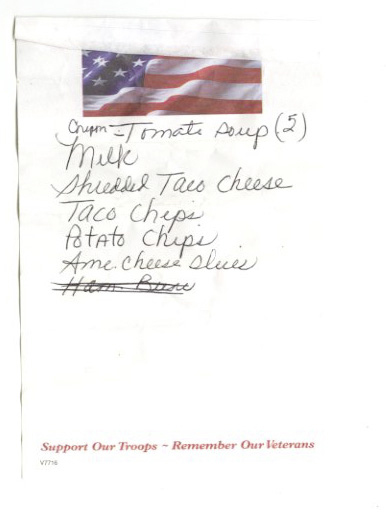 Tomato soup (5)
Milk
Shredded Taco Cheese
Taco Chips
Potato Chips
Ame. Cheese Slices
Ham
Support Our Troops ~ Remember Our Veterans
V7716